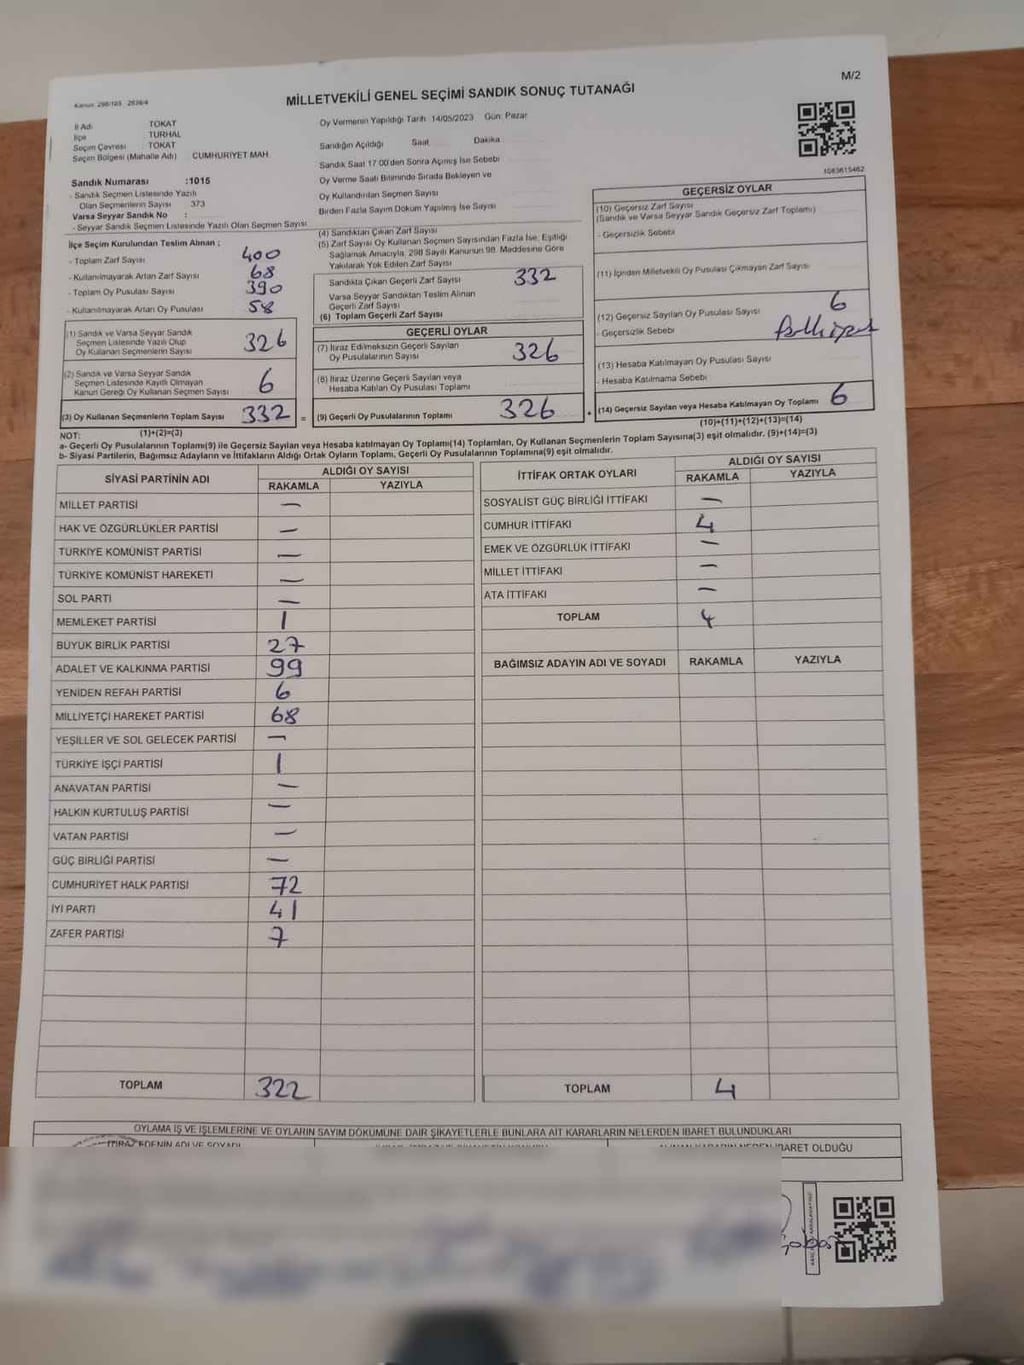 M/2
Kanun: 298/105 2839/4
MİLLETVEKİLİ GENEL SEÇİMİ SANDIK SONUÇ TUTANAĞI
İl Adı TOKAT
İlçe TURHAL
Seçim Çevresi TOKAT
Seçim Bölgesi (Mahalle Adı) CUMHURİYET MAH.
Sandık Numarası :1015
- Sandık Seçmen Listesinde Yazılı
Olan Seçmenlerin Sayısı 373
Varsa Seyyar Sandık No :
- Seyyar Sandık Seçmen Listesinde Yazılı Olan Seçmen Sayısı
Oy Vermenin Yapıldığı Tarih: 14/05/2023 Gün: Pazar
Sandığın Açıldığı Saat Dakika
Sandık Saat 17:00'den Sonra Açılmış İse Sebebi
Oy Verme Saati Bitiminde Sırada Bekleyen ve
Oy Kullandırılan Seçmen Sayısı
Birden Fazla Sayım Döküm Yapılmış İse Sayısı
1083615462
İlçe Seçim Kurulundan Teslim Alınan ;
- Toplam Zarf Sayısı 400
- Kullanılmayarak Artan Zarf Sayısı 68
- Toplam Oy Pusulası Sayısı 390
- Kullanılmayarak Artan Oy Pusulası 58
(1) Sandık ve Varsa Seyyar Sandık
Seçmen Listesinde Yazılı Olup
Oy Kullanan Seçmenlerin Sayısı 326
(2) Sandık ve Varsa Seyyar Sandık
Seçmen Listesinde Kayıtlı Olmayan
Kanun Gereği Oy Kullanan Seçmen Sayısı 6
(3) Oy Kullanan Seçmenlerin Toplam Sayısı 332 =
(1)+(2)=(3)
(4) Sandıktan Çıkan Zarf Sayısı
(5) Zarf Sayısı Oy Kullanan Seçmen Sayısından Fazla İse, Eşitliği
Sağlamak Amacıyla, 298 Sayılı Kanunun 98. Maddesine Göre
Yakılarak Yok Edilen Zarf Sayısı
Sandıkta Çıkan Geçerli Zarf Sayısı 332
Varsa Seyyar Sandıktan Teslim Alınan
Geçerli Zarf Sayısı
(6) Toplam Geçerli Zarf Sayısı
GEÇERLİ OYLAR
(7) İtiraz Edilmeksizin Geçerli Sayılan
Oy Pusulalarının Sayısı 326
(8) İtiraz Üzerine Geçerli Sayılan veya
Hesaba Katılan Oy Pusulası Toplamı
(9) Geçerli Oy Pusulalarının Toplamı 326 +
GEÇERSİZ OYLAR
(10) Geçersiz Zarf Sayısı
(Sandık ve Varsa Seyyar Sandık Geçersiz Zarf Toplamı)
- Geçersizlik Sebebi
(11) İçinden Milletvekili Oy Pusulası Çıkmayan Zarf Sayısı
(12) Geçersiz Sayılan Oy Pusulası Sayısı 6
- Geçersizlik Sebebi
(13) Hesaba Katılmayan Oy Pusulası Sayısı
- Hesaba Katılmama Sebebi
(14) Geçersiz Sayılan veya Hesaba Katılmayan Oy Toplamı 6
(10)+(11)+(12)+(13)=(14)
NOT:
a- Geçerli Oy Pusulalarının Toplamı(9) ile Geçersiz Sayılan veya Hesaba katılmayan Oy Toplamı(14) Toplamları, Oy Kullanan Seçmenlerin Toplam Sayısına(3) eşit olmalıdır. (9)+(14)=(3)
b- Siyasi Partilerin, Bağımsız Adayların ve İttifakların Aldığı Ortak Oyların Toplamı, Geçerli Oy Pusulalarının Toplamına(9) eşit olmalıdır.
SİYASİ PARTİNİN ADI ALDIĞI OY SAYISI
RAKAMLA YAZIYLA
MİLLET PARTİSİ —
HAK VE ÖZGÜRLÜKLER PARTİSİ —
TÜRKİYE KOMÜNİST PARTİSİ —
TÜRKİYE KOMÜNİST HAREKETİ —
SOL PARTİ —
MEMLEKET PARTİSİ 1
BÜYÜK BİRLİK PARTİSİ 27
ADALET VE KALKINMA PARTİSİ 99
YENİDEN REFAH PARTİSİ 6
MİLLİYETÇİ HAREKET PARTİSİ 68
YEŞİLLER VE SOL GELECEK PARTİSİ —
TÜRKİYE İŞÇİ PARTİSİ 1
ANAVATAN PARTİSİ —
HALKIN KURTULUŞ PARTİSİ —
VATAN PARTİSİ —
GÜÇ BİRLİĞİ PARTİSİ —
CUMHURİYET HALK PARTİSİ 72
İYİ PARTİ 41
ZAFER PARTİSİ 7
TOPLAM 322
İTTİFAK ORTAK OYLARI ALDIĞI OY SAYISI
RAKAMLA YAZIYLA
SOSYALİST GÜÇ BİRLİĞİ İTTİFAKI —
CUMHUR İTTİFAKI 4
EMEK VE ÖZGÜRLÜK İTTİFAKI —
MİLLET İTTİFAKI —
ATA İTTİFAKI —
TOPLAM 4
BAĞIMSIZ ADAYIN ADI VE SOYADI RAKAMLA YAZIYLA
TOPLAM 4
OYLAMA İŞ VE İŞLEMLERİNE VE OYLARIN SAYIM DÖKÜMÜNE DAİR ŞİKAYETLERLE BUNLARA AİT KARARLARIN NELERDEN İBARET BULUNDUKLARI
İTİRAZ EDENİN ADI VE SOYADI
İBARET OLDUĞU